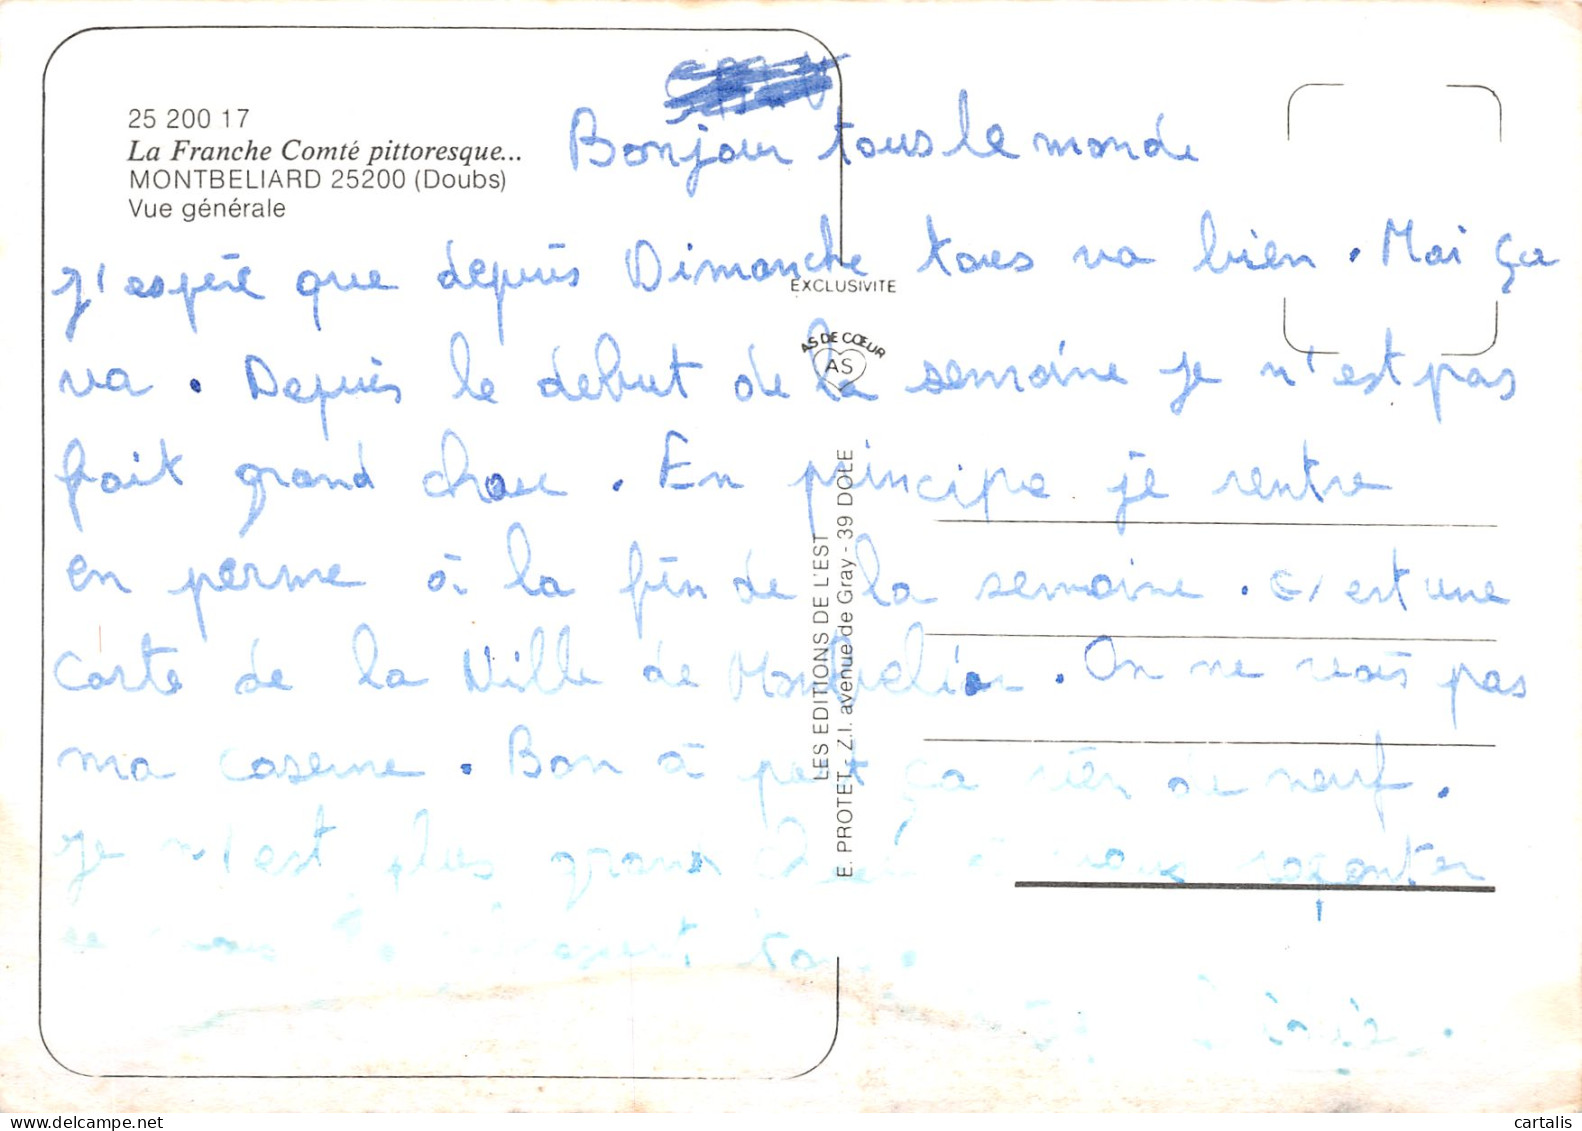 25 200 17
La Franche Comté pittoresque...
MONTBELIARD 25200 (Doubs)
Vue générale
Bonjour tous le monde
j'espère que depuis Dimanche tous va bien. Moi ça
va. Depuis le debut de la semaine je n'est pas
fait grand chose. En principe je rentre
en perme à la fin de la semaine. C'est une
carte de la Ville de Montbeliar. On ne vois pas
ma caserne. Bon à part ça rien de neuf.
Je n'est plus grand à vous raconter
EXCLUSIVITE
AS DE CŒUR
AS
LES EDITIONS DE L'EST
E. PROTET - Z.I. avenue de Gray - 39 DOLE
cartalis